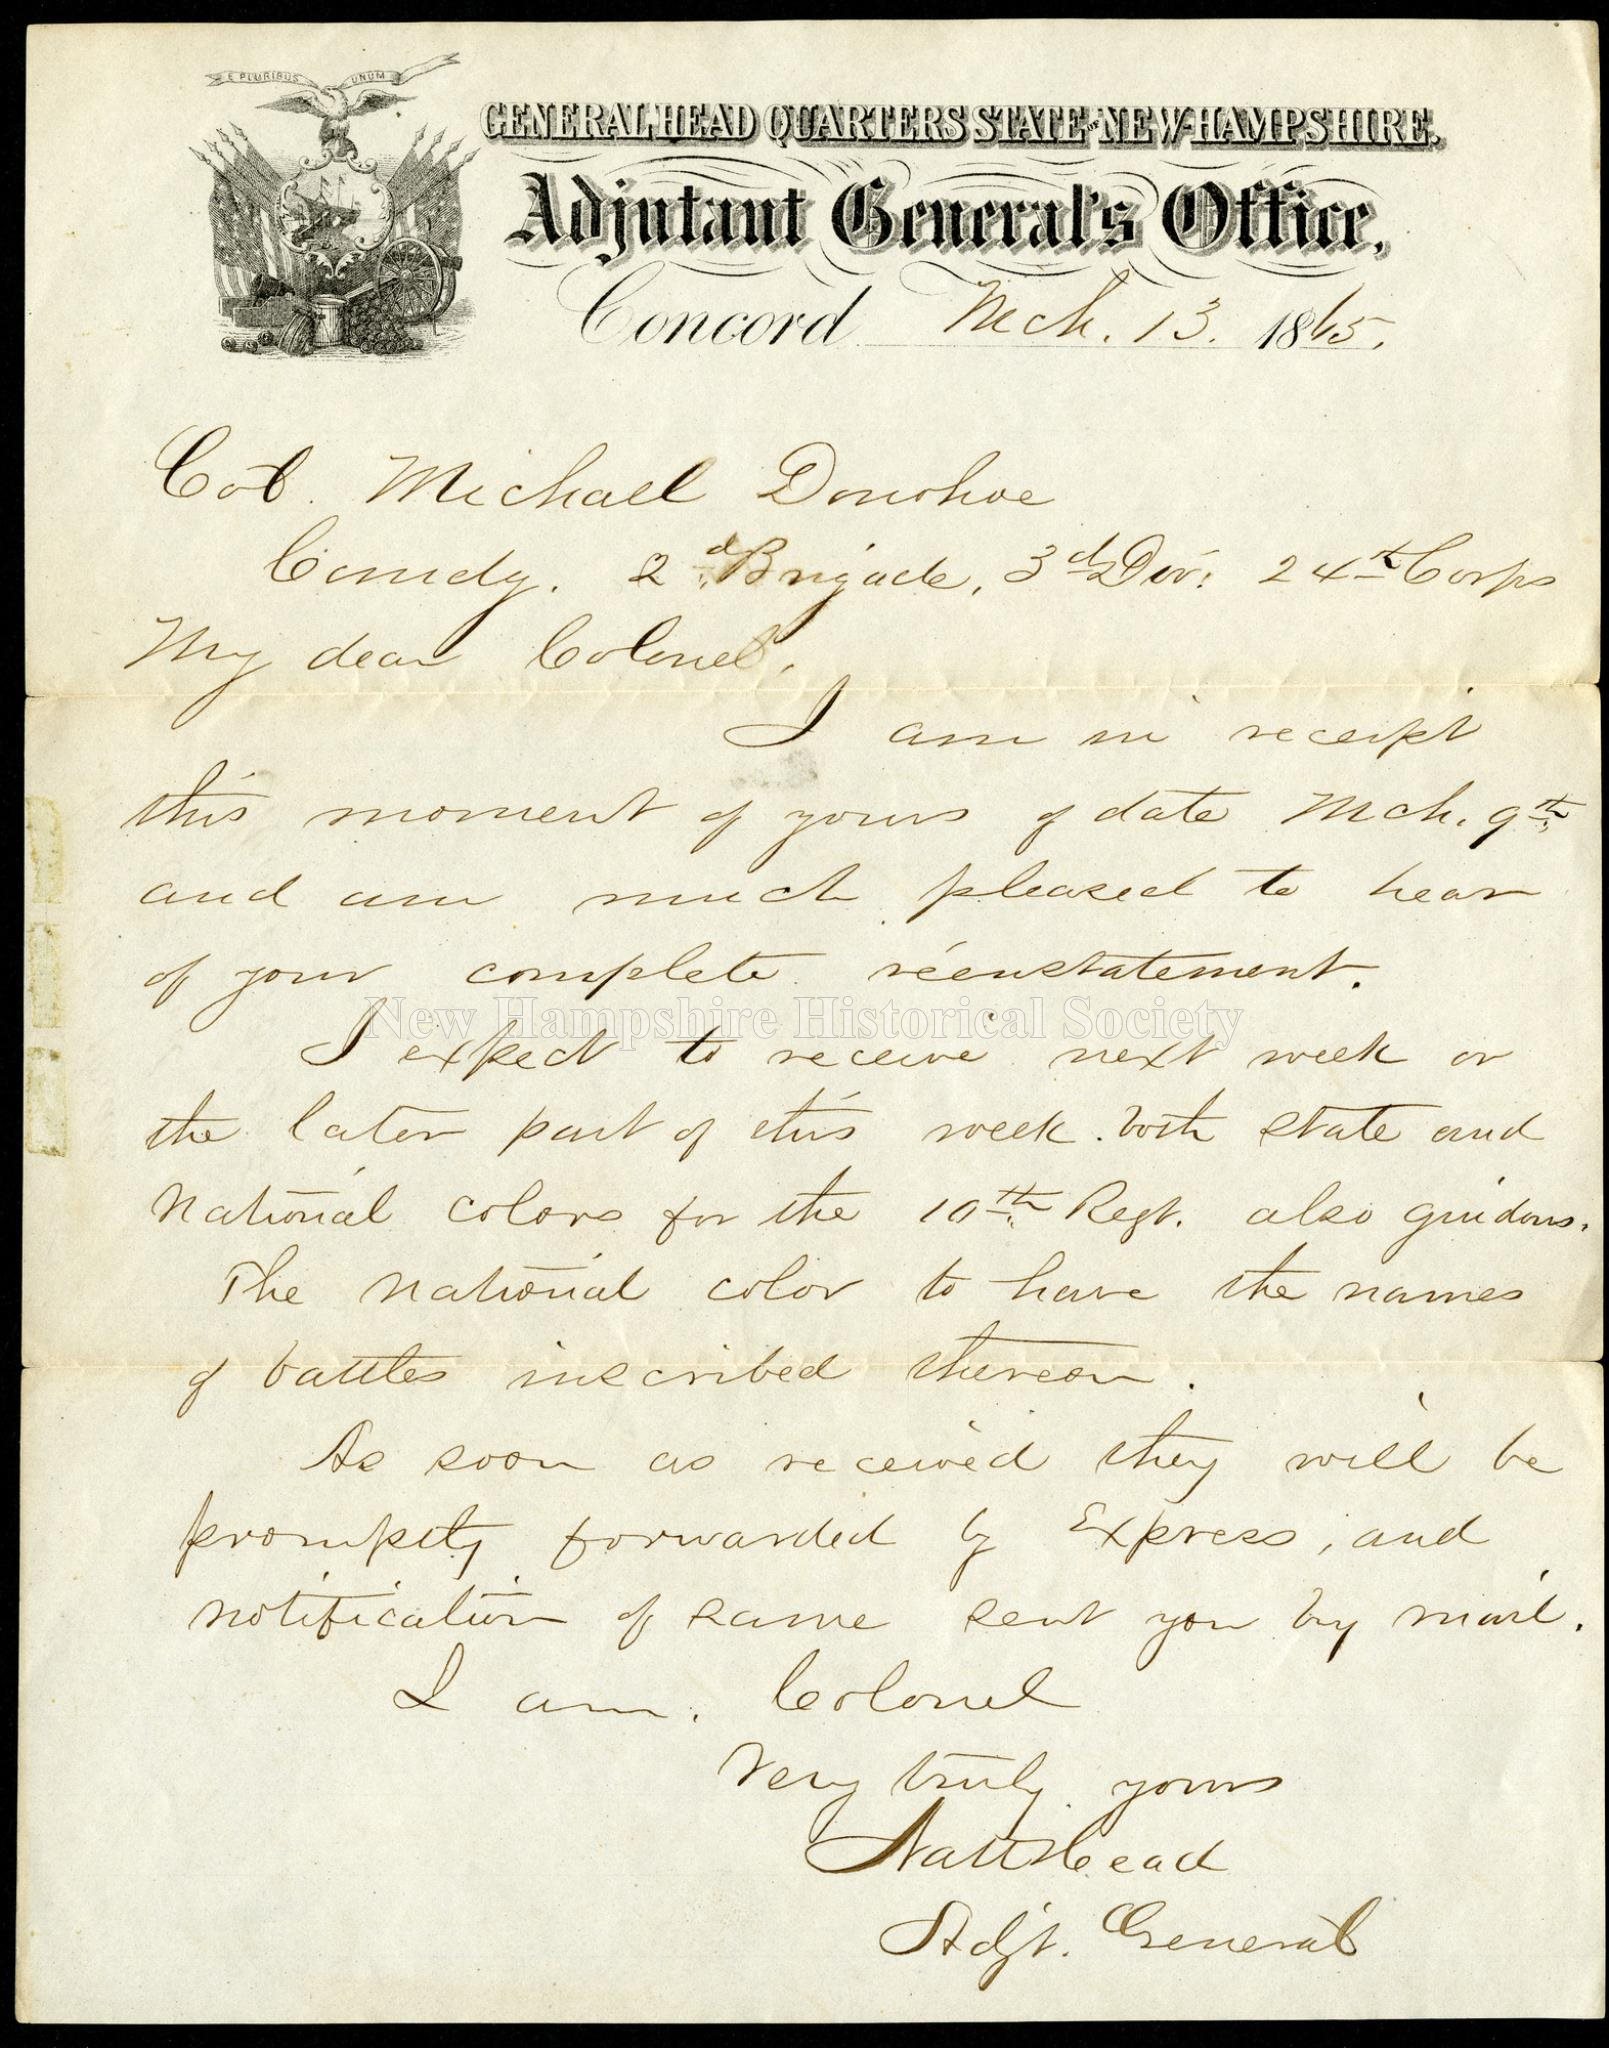 E PLURIBUS UNUM
GENERAL HEAD QUARTERS STATE OF NEW-HAMPSHIRE.
Adjutant General's Office,
Concord Mch. 13. 1865.
Col. Michael Donohoe
Comdg. 2d Brigade, 3d Div. 24th Corps
My dear Colonel,
I am in receipt
this moment of yours of date Mch. 9th
and am much pleased to hear
of your complete reënstatement.
New Hampshire Historical Society
I expect to receive next week or
the later part of this week both state and
National colors for the 10th Regt. also guidons.
The National color to have the names
of battles inscribed thereon.
As soon as received they will be
promptly forwarded by Express, and
notification of same sent you by mail.
I am, Colonel
Very truly yours
Natt Head
Adjt. General